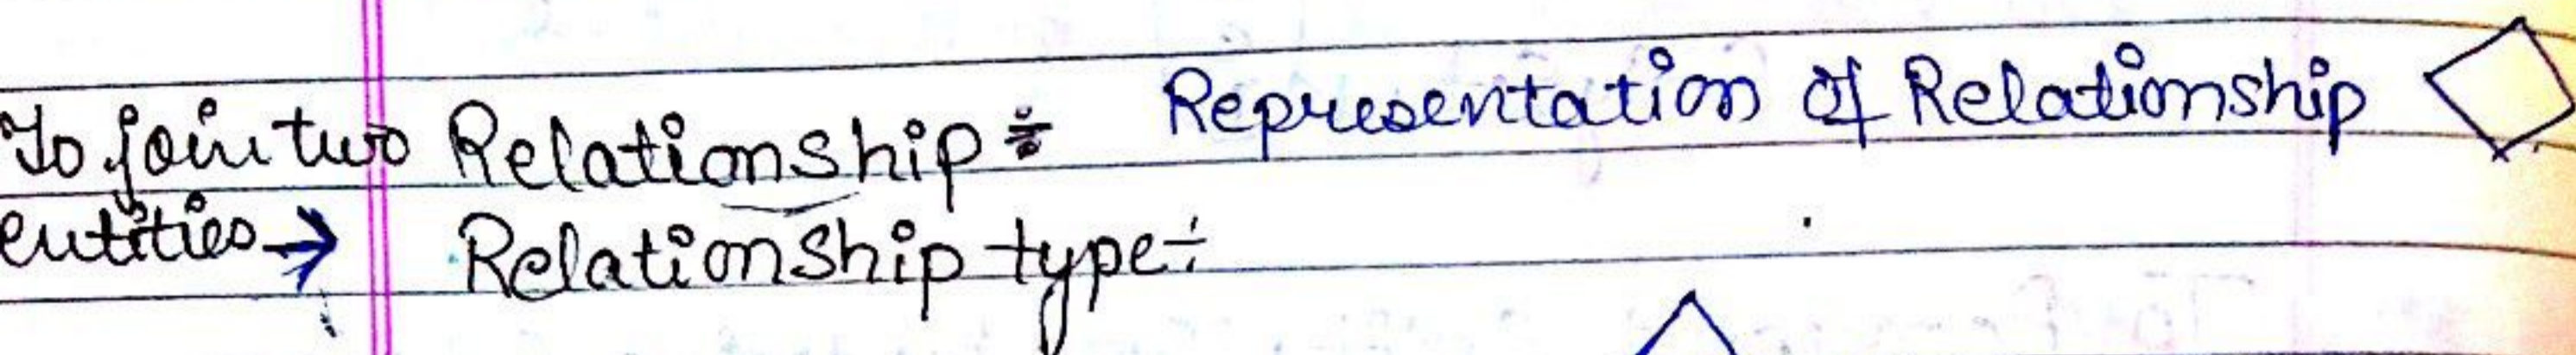 To join two Relationship÷ Representation of Relationship
entities→ Relationship type÷